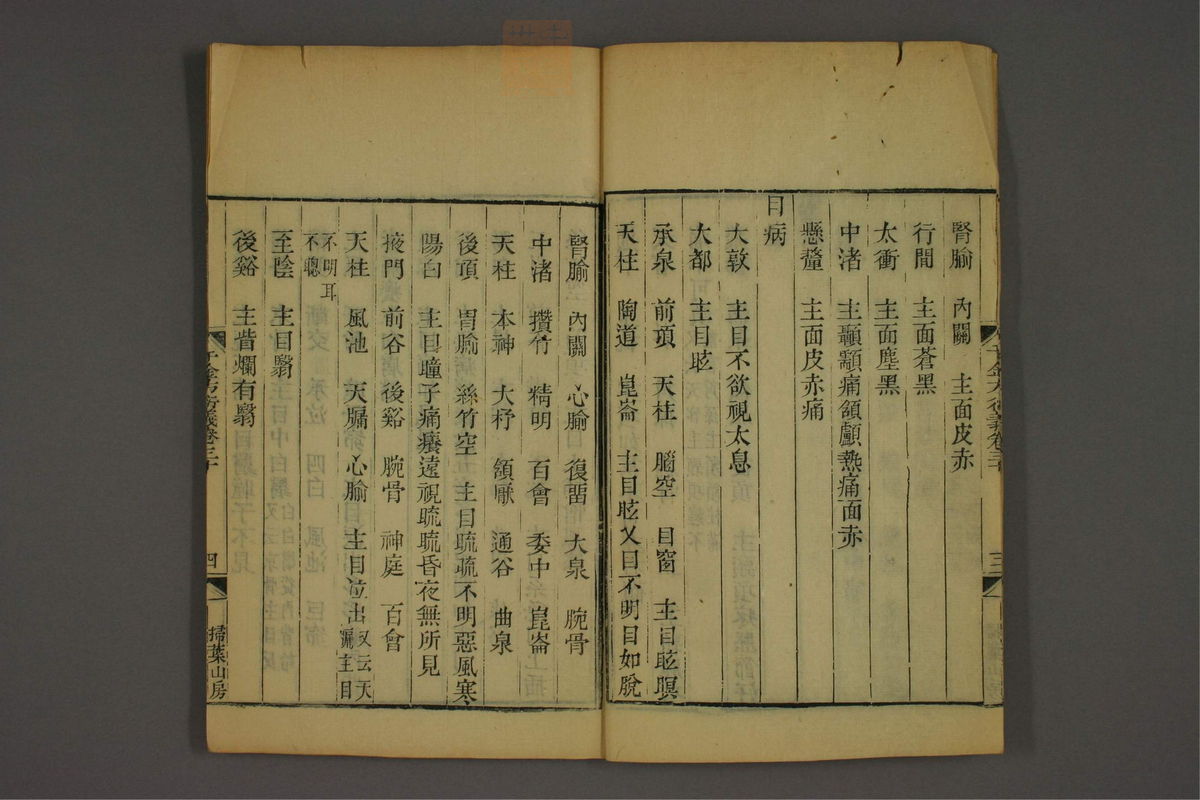 腎腧　內關　主面皮赤
行間　主面蒼黑
太衝　主面塵黑
中渚　主顳顬痛頷顱熱痛面赤
懸釐　主面皮赤痛
目病
大敦　主目不欲視太息
大都　主目眩
承泉　前頂　天柱　腦空　目窗　主目眩瞑
天柱　陶道　崑崙　主目眩又目不明目如脫
三
腎腧　內關　心腧　復畱　大泉　腕骨
中渚　攢竹　精明　百會　委中　崑崙
天柱　本神　大杼　頷厭　通谷　曲泉
後頂　胃腧　絲竹空　主目䀮䀮不明惡風寒
陽白　主目瞳子痛癢遠視䀮䀮昏夜無所見
掖門　前谷　後谿　腕骨　神庭　百會
天柱　風池　天牖　心腧　主目泣出又云天牖主目
不明耳不聰
至陰　主目翳
後谿　主眥爛有翳
千金方衍義卷三十
四
掃葉山房